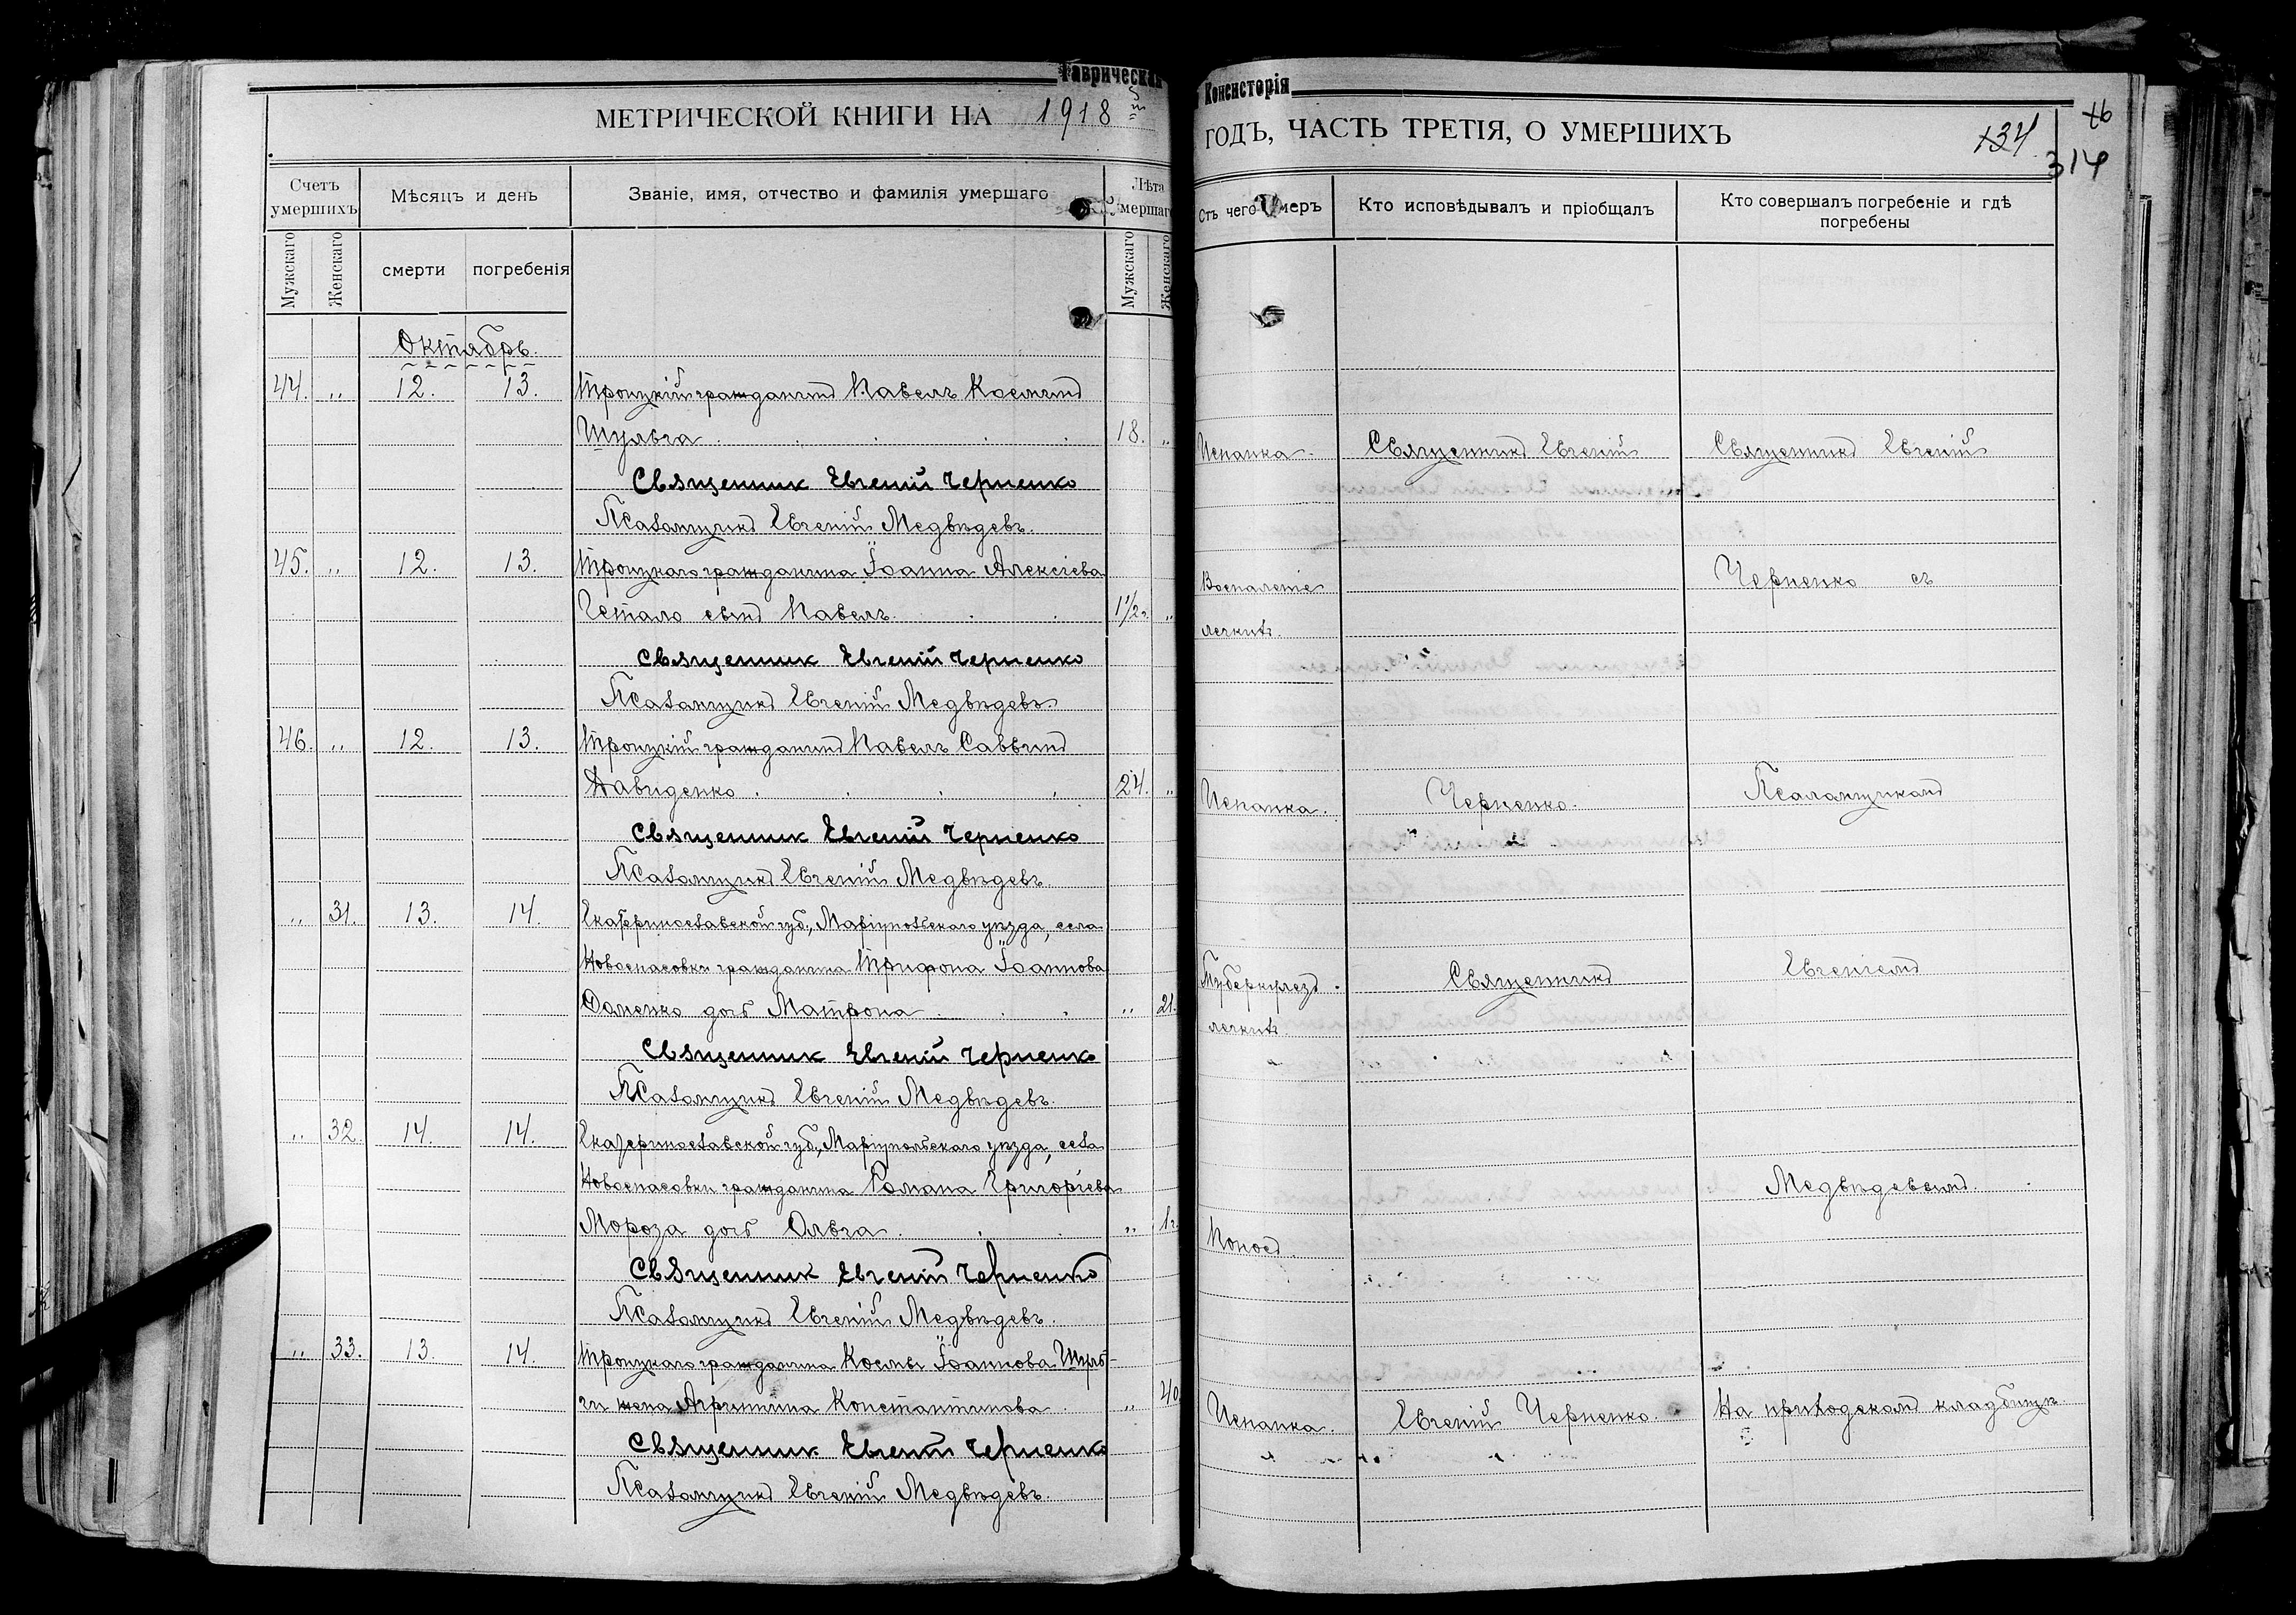 Таврическая Консисторія
МЕТРИЧЕСКОЙ КНИГИ НА 1918й
Счетъ умершихъ
Мѣсяцъ и день
Званіе, имя, отчество и фамилія умершаго
Лѣта умершаго
Мужскаго
Женскаго
смерти
погребенія
Мужскаго
Женскаго
Октябрь.
44. „ 12. 13. Троицкій гражданинъ Павелъ Косминъ
Шульга 18. „
Священник Евгеній Черненко
Псаломщикъ Евгеній Медвѣдевъ.
45. „ 12. 13. Троицкаго гражданина Іоанна Алексіева
Чепало сынъ Павелъ. 1 1/2 г. „
Священник Евгеній Черненко
Псаломщикъ Евгеній Медвѣдевъ.
46. „ 12. 13. Троицкій гражданинъ Павелъ Саввинъ
Давиденко 24. „
Священник Евгеній Черненко
Псаломщикъ Евгеній Медвѣдевъ.
„ 31. 13. 14. Екатеринославской губ., Маріупольскаго уѣзда, села
Новоспасовки гражданина Трифона Іоаннова
дочь Матрона „ 21.
Священник Евгеній Черненко
Псаломщикъ Евгеній Медвѣдевъ.
„ 32. 14. 14. Екатеринославской губ., Маріупольскаго уѣзда, села
Новоспасовки гражданина Романа Григоріева
Мороза дочь Ольга „ 1 г.
Священник Евгеній Черненко
Псаломщикъ Евгеній Медвѣдевъ.
„ 33. 13. 14. Троицкаго гражданина Космы Іоаннова Шуль-
ги жена Агриппина Константинова „ 40
Священник Евгеній Черненко
Псаломщикъ Евгеній Медвѣдевъ.
ГОДЪ, ЧАСТЬ ТРЕТІЯ, О УМЕРШИХЪ
134
314
Отъ чего умеръ
Кто исповѣдывалъ и пріобщалъ
Кто совершалъ погребеніе и гдѣ погребены
Испанка. Священникъ Евгеній Священникъ Евгеній
Воспаленіе Черненко съ
легкихъ.
Испанка. Черненко. Псаломщикомъ
Туберкулезъ Священникъ Евгеніемъ
легкихъ
Медвѣдевымъ.
Поносъ.
Испанка. Евгеній Черненко. На приходскомъ кладбищѣ.